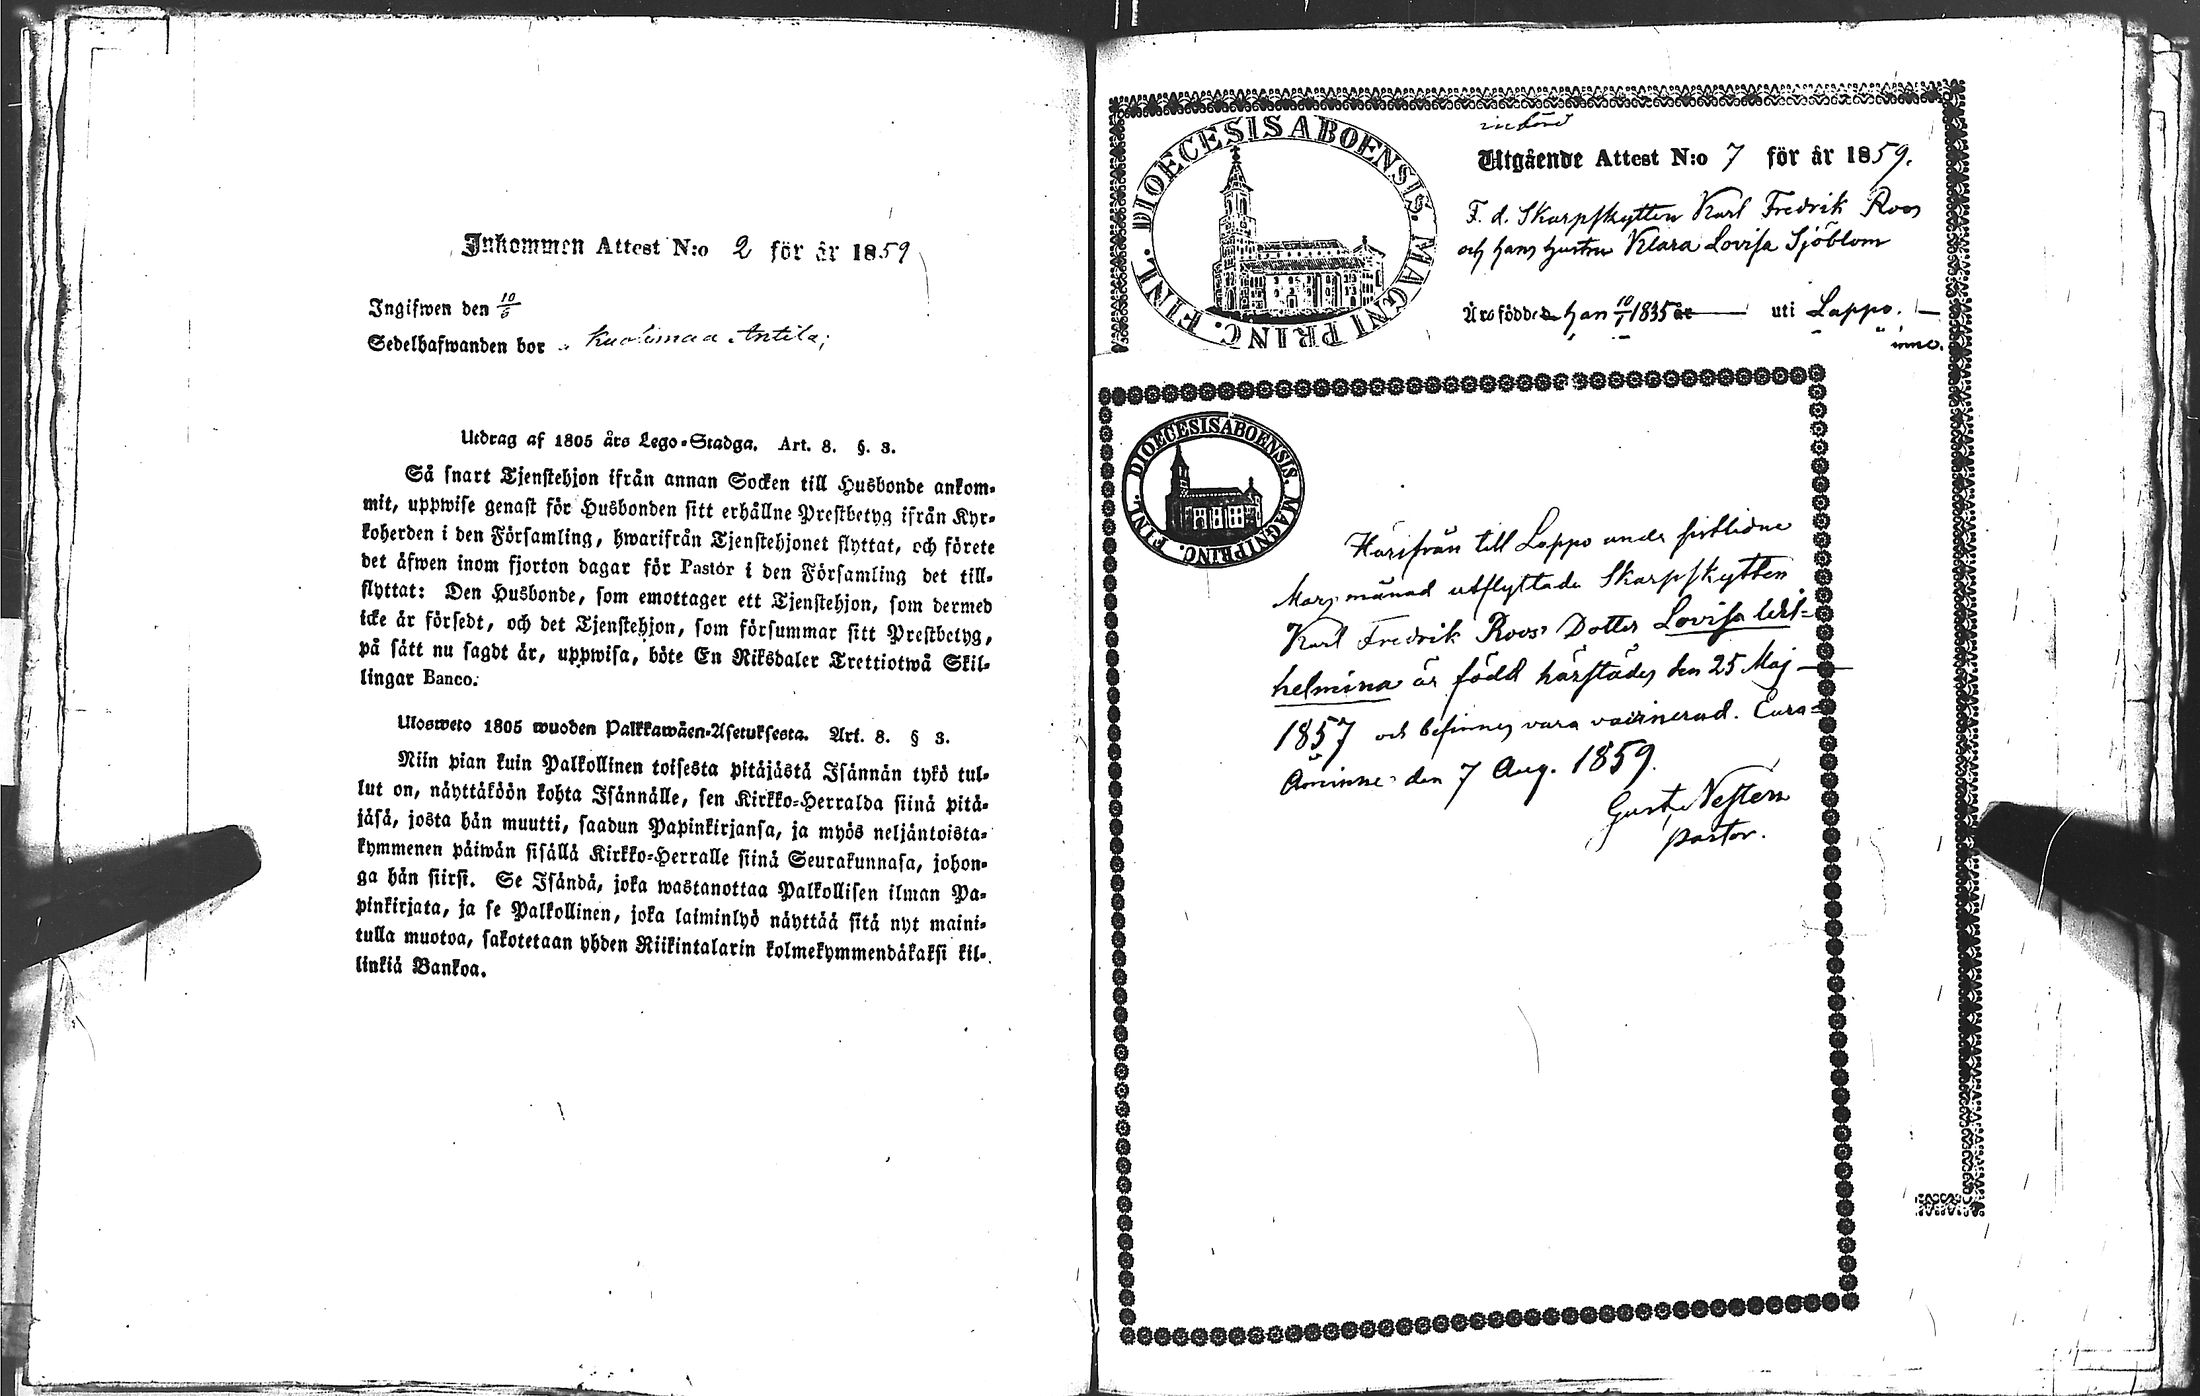 Inkommen Attest N:o 2 för år 1859
Ingifwen den 10/6
Sedelhafwanden bor Antila;
Utdrag af 1805 års Lego-Stadga. Art. 8. §. 3.
Så snart Tjenstehjon ifrån annan Socken till Husbonde ankom-
mit, uppwise genast för Husbonden sitt erhållne Prestbetyg ifrån Kyr-
koherden i den Församling, hwarifrån Tjenstehjonet flyttat, och förete
det äfwen inom fjorton dagar för Pastor i den Församling det till-
flyttat: Den Husbonde, som emottager ett Tjenstehjon, som dermed
icke är försedt, och det Tjenstehjon, som försummar sitt Prestbetyg,
på sätt nu sagdt är, uppwisa, böte En Riksdaler Trettiotwå Skil-
lingar Banco.
Ulosweto 1805 wuoden Palkkawäen-Asetuksesta. Art. 8. § 3.
Niin pian kuin Palkollinen toisesta pitäjästä Isännän tykö tul-
lut on, näyttäköön kohta Isännälle, sen Kirkko-Herralda siinä pitä-
jäsä, josta hän muutti, saadun Papinkirjansa, ja myös neljäntoista-
kymmenen päiwän sisällä Kirkko-Herralle siinä Seurakunnasa, johon-
ga hän siirsi. Se Isändä, joka wastanottaa Palkollisen ilman Pa-
pinkirjata, ja se Palkollinen, joka laiminlyö näyttää sitä nyt maini-
tulla muotoa, sakotetaan yhden Riikintalarin kolmekymmendäkaksi kil-
linkiä Bankoa.
DIOECESIS ABOENSIS. MAGNI PRINC. FINL.
Utgående Attest N:o 7 för år 1859.
F. d. Skarpskytten Karl Fredrik Roos
och hans hustru Klara Lovisa Sjöblom
Äro födde han 10/1 1835 år uti Lappo.
DIOECESIS ABOENSIS. MAGNI PRINC. FINL.
Härifrån till Lappo under sistlidne
Mars månad utflyttade Skarpskytten
Karl Fredrik Roos' Dotter Lovisa Wil-
helmina är född härstädes den 25 Maj
1857 och befinnes vara vaccinerad. Eura-
Åminne den 7 Aug. 1859.
Gust.
pastor.